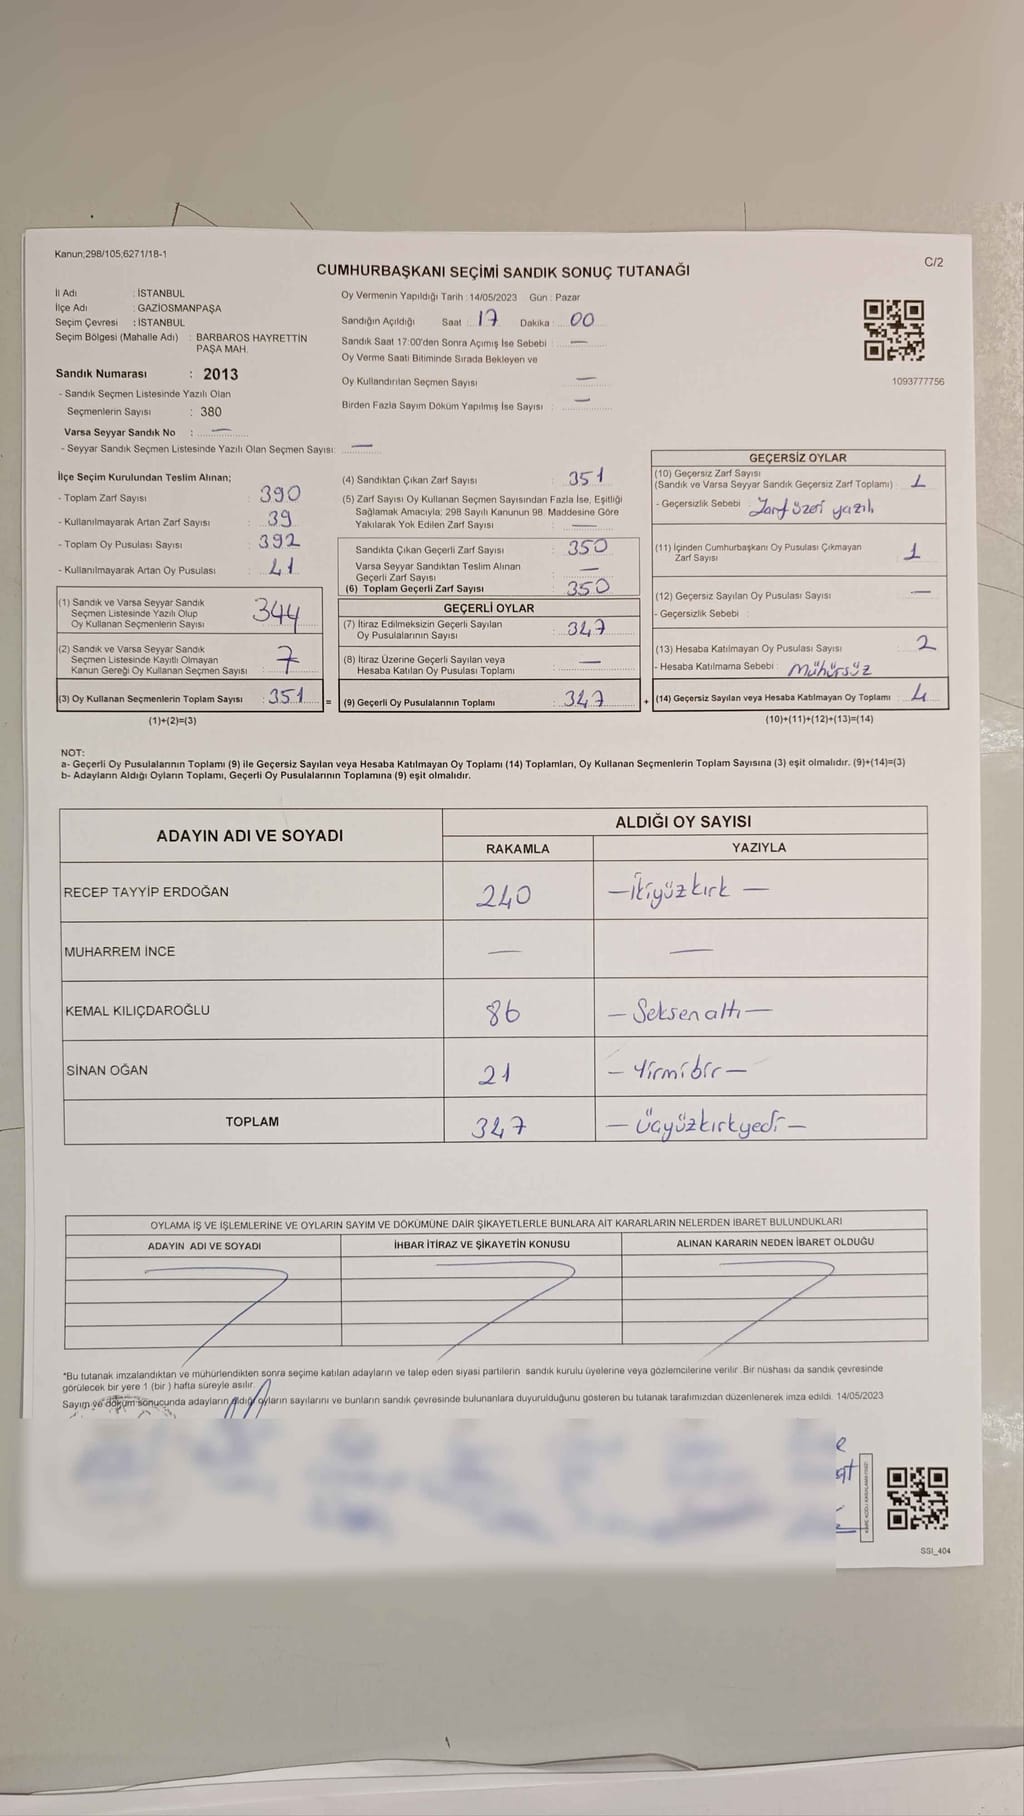 Kanun;298/105,6271/18-1
C/2
CUMHURBAŞKANI SEÇİMİ SANDIK SONUÇ TUTANAĞI
İl Adı : İSTANBUL
İlçe Adı : GAZİOSMANPAŞA
Seçim Çevresi : İSTANBUL
Seçim Bölgesi (Mahalle Adı) : BARBAROS HAYRETTİN
PAŞA MAH.
Sandık Numarası : 2013
- Sandık Seçmen Listesinde Yazılı Olan
Seçmenlerin Sayısı : 380
Varsa Seyyar Sandık No : —
- Seyyar Sandık Seçmen Listesinde Yazılı Olan Seçmen Sayısı: —
Oy Vermenin Yapıldığı Tarih : 14/05/2023 Gün : Pazar
Sandığın Açıldığı Saat : 17 Dakika : 00
Sandık Saat 17:00'den Sonra Açımış İse Sebebi : —
Oy Verme Saati Bitiminde Sırada Bekleyen ve
Oy Kullandırılan Seçmen Sayısı : —
Birden Fazla Sayım Döküm Yapılmış İse Sayısı : —
1093777756
İlçe Seçim Kurulundan Teslim Alınan;
- Toplam Zarf Sayısı : 390
- Kullanılmayarak Artan Zarf Sayısı : 39
- Toplam Oy Pusulası Sayısı : 392
- Kullanılmayarak Artan Oy Pusulası : 41
(1) Sandık ve Varsa Seyyar Sandık
Seçmen Listesinde Yazılı Olup
Oy Kullanan Seçmenlerin Sayısı : 344
(2) Sandık ve Varsa Seyyar Sandık
Seçmen Listesinde Kayıtlı Olmayan
Kanun Gereği Oy Kullanan Seçmen Sayısı : 7
(3) Oy Kullanan Seçmenlerin Toplam Sayısı : 351 =
(1)+(2)=(3)
(4) Sandıktan Çıkan Zarf Sayısı : 351
(5) Zarf Sayısı Oy Kullanan Seçmen Sayısından Fazla İse, Eşitliği
Sağlamak Amacıyla; 298 Sayılı Kanunun 98. Maddesine Göre
Yakılarak Yok Edilen Zarf Sayısı : —
Sandıkta Çıkan Geçerli Zarf Sayısı : 350
Varsa Seyyar Sandıktan Teslim Alınan
Geçerli Zarf Sayısı : —
(6) Toplam Geçerli Zarf Sayısı : 350
GEÇERLİ OYLAR
(7) İtiraz Edilmeksizin Geçerli Sayılan
Oy Pusulalarının Sayısı : 347
(8) İtiraz Üzerine Geçerli Sayılan veya
Hesaba Katılan Oy Pusulası Toplamı : —
(9) Geçerli Oy Pusulalarının Toplamı : 347 +
GEÇERSİZ OYLAR
(10) Geçersiz Zarf Sayısı
(Sandık ve Varsa Seyyar Sandık Geçersiz Zarf Toplamı) : 1
- Geçersizlik Sebebi : Zarf üzeri yazılı
(11) İçinden Cumhurbaşkanı Oy Pusulası Çıkmayan
Zarf Sayısı : 1
(12) Geçersiz Sayılan Oy Pusulası Sayısı : —
- Geçersizlik Sebebi :
(13) Hesaba Katılmayan Oy Pusulası Sayısı : 2
- Hesaba Katılmama Sebebi : Mühürsüz
(14) Geçersiz Sayılan veya Hesaba Katılmayan Oy Toplamı : 4
(10)+(11)+(12)+(13)=(14)
NOT:
a- Geçerli Oy Pusulalarının Toplamı (9) ile Geçersiz Sayılan veya Hesaba Katılmayan Oy Toplamı (14) Toplamları, Oy Kullanan Seçmenlerin Toplam Sayısına (3) eşit olmalıdır. (9)+(14)=(3)
b- Adayların Aldığı Oyların Toplamı, Geçerli Oy Pusulalarının Toplamına (9) eşit olmalıdır.
ADAYIN ADI VE SOYADI ALDIĞI OY SAYISI
RAKAMLA YAZIYLA
RECEP TAYYİP ERDOĞAN 240 — İkiyüzkırk —
MUHARREM İNCE — —
KEMAL KILIÇDAROĞLU 86 — Seksenaltı —
SİNAN OĞAN 21 — Yirmibir —
TOPLAM 347 — Üçyüzkırkyedi —
OYLAMA İŞ VE İŞLEMLERİNE VE OYLARIN SAYIM VE DÖKÜMÜNE DAİR ŞİKAYETLERLE BUNLARA AİT KARARLARIN NELERDEN İBARET BULUNDUKLARI
ADAYIN ADI VE SOYADI İHBAR İTİRAZ VE ŞİKAYETİN KONUSU ALINAN KARARIN NEDEN İBARET OLDUĞU
*Bu tutanak imzalandıktan ve mühürlendikten sonra seçime katılan adayların ve talep eden siyasi partilerin sandık kurulu üyelerine veya gözlemcilerine verilir. Bir nüshası da sandık çevresinde
görülecek bir yere 1 (bir ) hafta süreyle asılır.
Sayım ve döküm sonucunda adayların aldığı oyların sayılarını ve bunların sandık çevresinde bulunanlara duyurulduğunu gösteren bu tutanak tarafımızdan düzenlenerek imza edildi. 14/05/2023
SSI_404